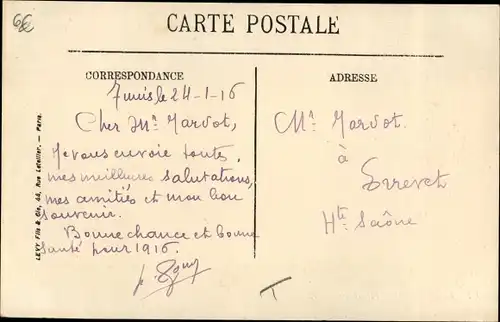 6€
CARTE POSTALE
CORRESPONDANCE
ADRESSE
Tunis le 24-1-16
Cher Mr Jardot,
Je vous envoie toutes
mes meilleures salutations,
mes amitiés et mon bon
souvenir.
Bonne chance et bonne
santé pour 1916.
Mr Jardot
à
Hte Saône
LEVY Fils & Cie, 44, Rue Letellier. — Paris.